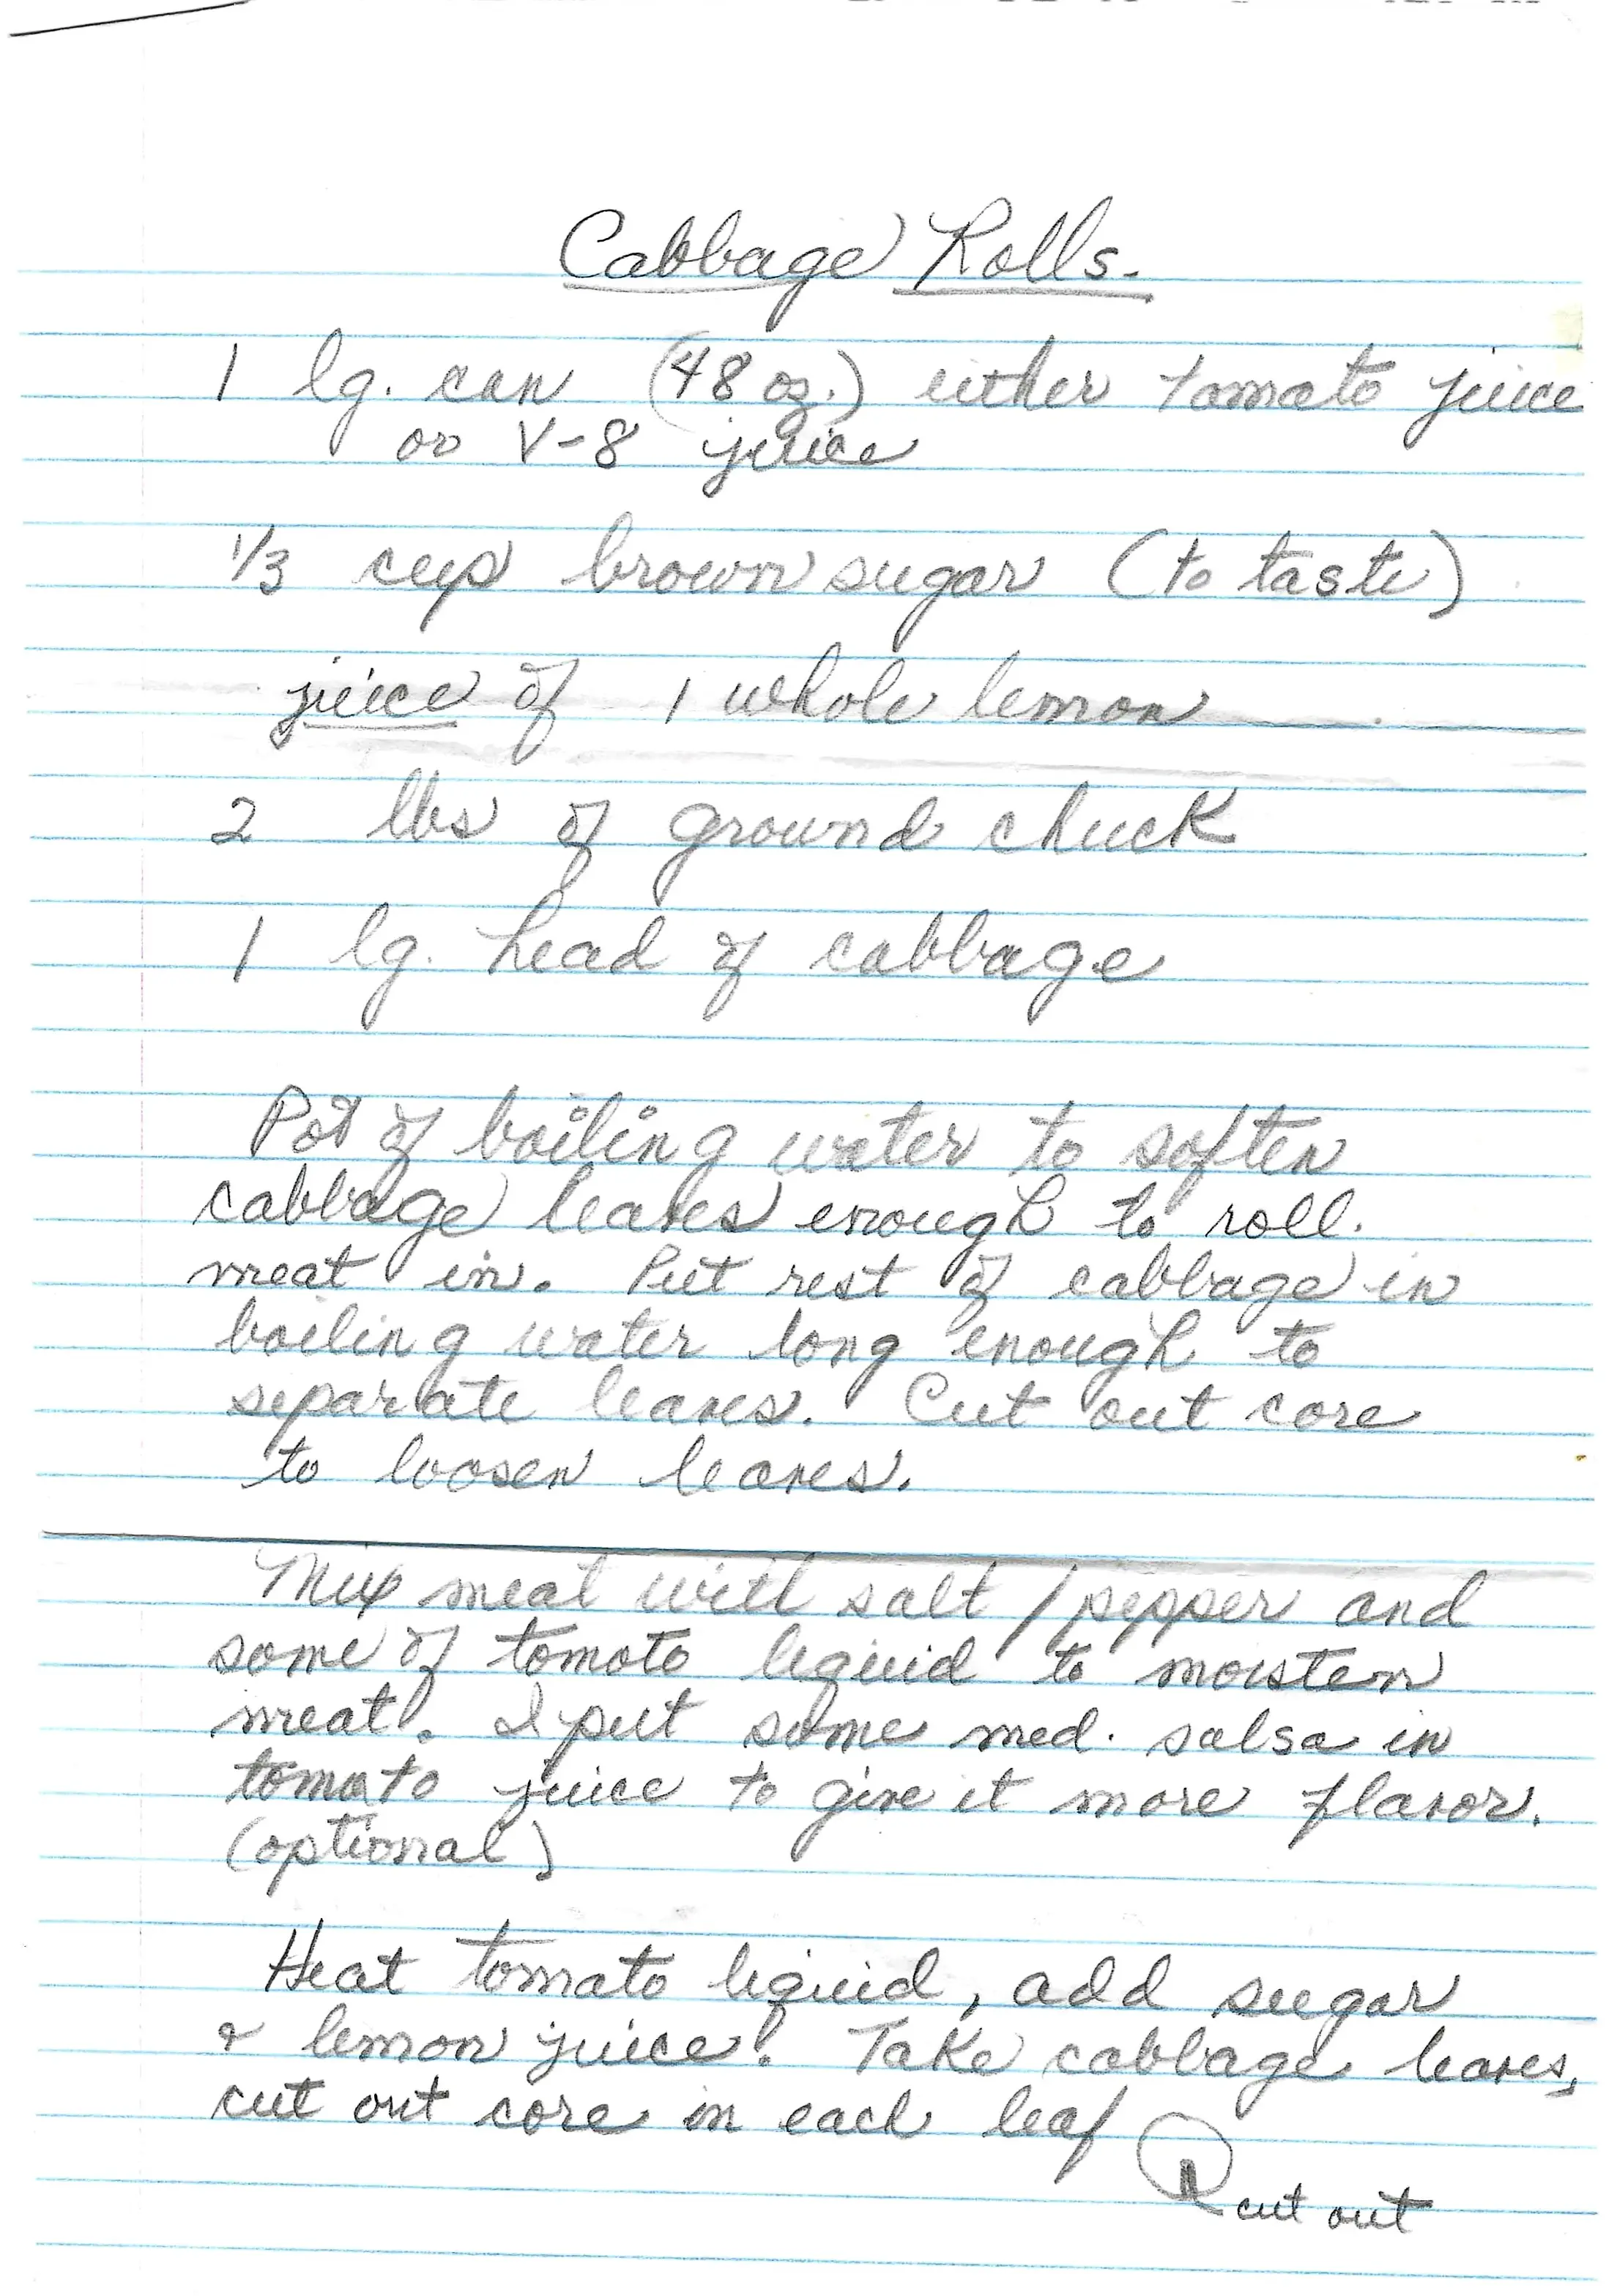 Cabbage Rolls.
1 lg. can (48 oz.) either tomato juice
or V-8 juice
1/3 cup brown sugar (to taste)
juice of 1 whole lemon
2 lbs of ground chuck
1 lg. head of cabbage
Pot of boiling water to soften
cabbage leaves enough to roll.
meat in. Put rest of cabbage in
boiling water long enough to
separate leaves. Cut out core
to loosen leaves.
Mix meat with salt / pepper and
some of tomoto liquid to moisten
meat. I put some med. salsa in
tomato juice to give it more flavor.
(optional)
Heat tomato liquid, add sugar
& lemon juice. Take cabbage leaves,
cut out core in each leaf
cut out